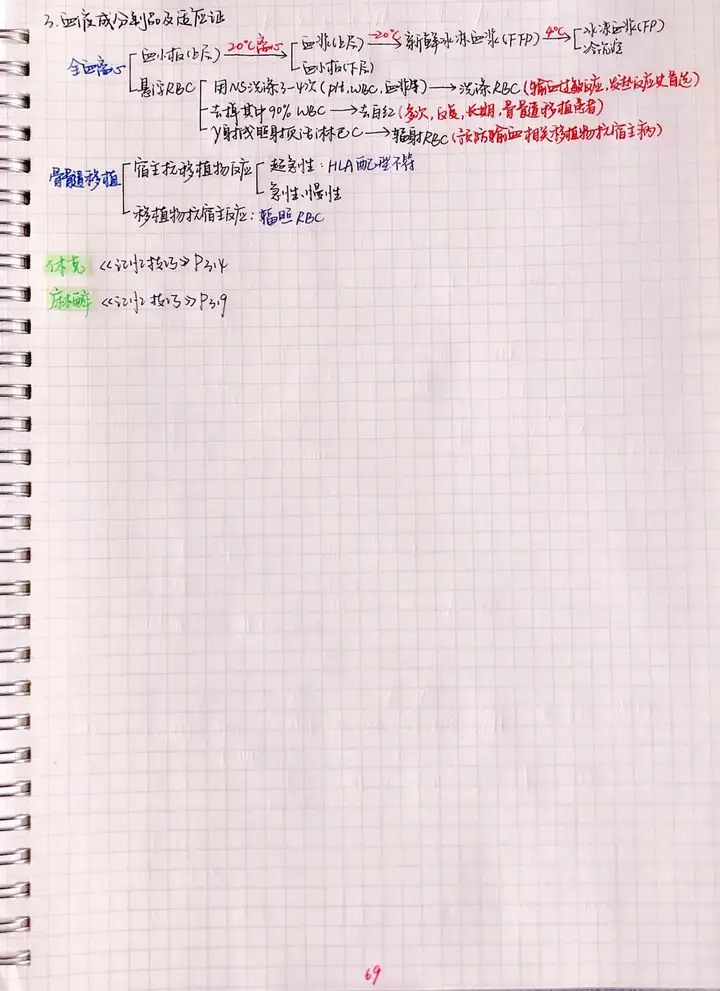 3.血液成分制品及适应证
全血离心
血小板(上层) 20℃离心→ 血浆(上层) -20℃→ 新鲜冰冻血浆(FFP) 4℃→ 冰冻血浆(FP)
血小板(下层) 冷沉淀
悬浮RBC 用NS洗涤3~4次(pH,WBC,血浆等)→洗涤RBC(输血过敏反应,发热反应史首选)
去掉其中90%WBC→去白红(多次,反复,长期,骨骨髓移植患者)
γ射线照射灭活淋巴C→辐射RBC(预防输血相关移植物抗宿主病)
骨髓移植
宿主抗移植物反应 超急性:HLA配型不符
急性、慢性
移植物抗宿主反应:辐照RBC
休克 《记忆技巧》P3.4
麻醉 《记忆技巧》P3.9
69